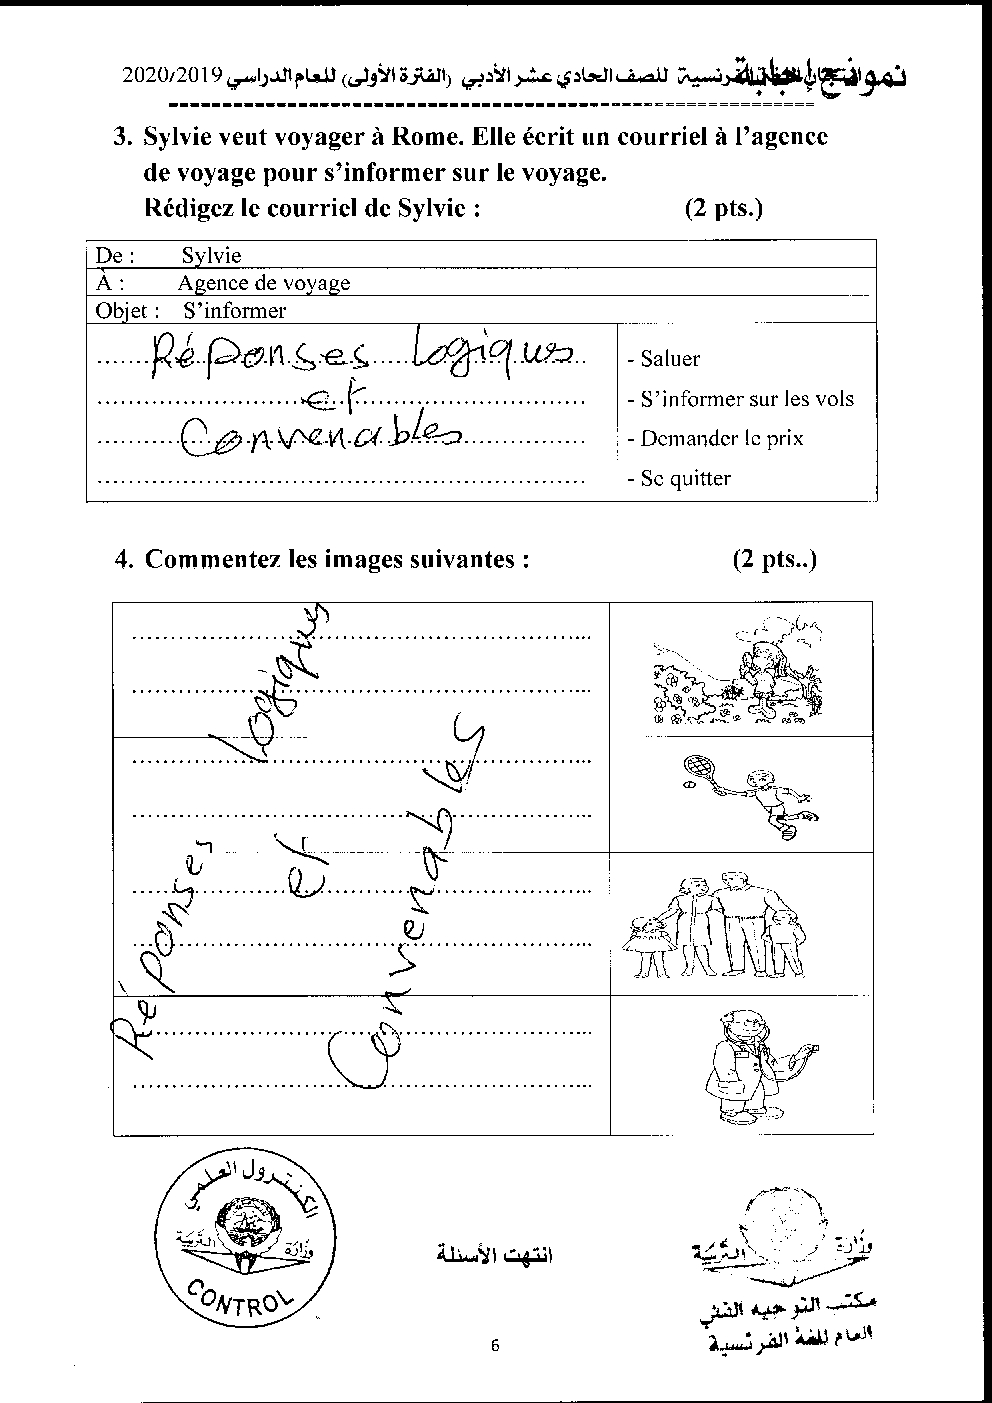 نموذج إجابة
امتحان اللغة الفرنسية للصف الحادي عشر الأدبي (الفترة الأولى) للعام الدراسي 2020/2019
3. Sylvie veut voyager à Rome. Elle écrit un courriel à l'agence
de voyage pour s'informer sur le voyage.
Rédigez le courriel de Sylvie : (2 pts.)
De : Sylvie
À : Agence de voyage
Objet : S'informer
Réponses Logiques
et
Convenables
- Saluer
- S'informer sur les vols
- Demander le prix
- Se quitter
4. Commentez les images suivantes : (2 pts..)
Réponses Logiques
et
Convenables
الكنترول العلمي
وزارة التربية
CONTROL
انتهت الأسئلة
وزارة التربية
مكتب التوجيه الفني
العام للغة الفرنسية
6